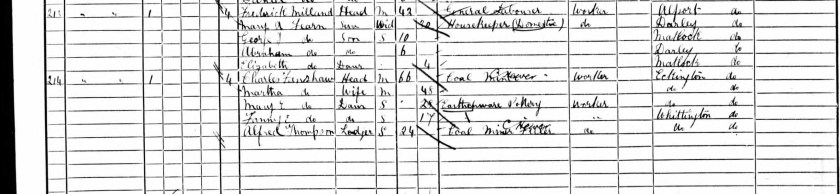 213 " " 1 4 Frederick Millund Head M 42 General Labourer Worker Alport do
Mary A Fearn Serv Wid 20 Housekeeper (Domestic) do Darley do
George do Son S 10 Matlock do
Abraham do do 6 Darley do
Elizabeth do Daur 4 Matlock do
214 " " 1 4 Charles Finshaw Head M 66 Coal Miner Hewer Worker Eckington do
Martha do Wife M 45 do do
Mary E do Daur S 28 Earthenware Pottery Worker do do
Fanny E do do S 17 " Whittington do
Alfred Thompson Lodger S 24 Coal Miner Hewer do do do